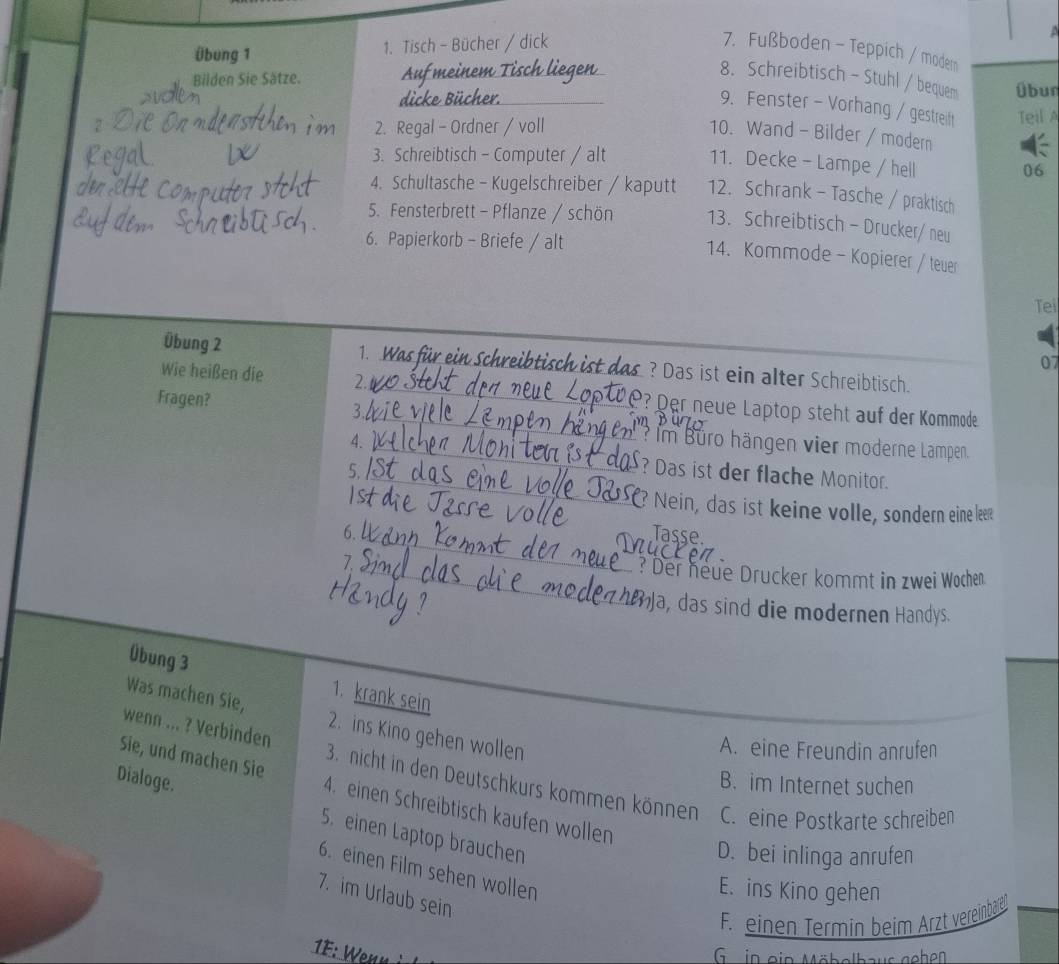 Übung 1
Bilden Sie Sätze.
2 Die Ordner stehen im
Regal
der alte computer steht
auf dem Schreibtisch.
1. Tisch – Bücher / dick
Auf meinem Tisch liegen
dicke Bücher.
2. Regal – Ordner / voll
3. Schreibtisch – Computer / alt
4. Schultasche – Kugelschreiber / kaputt
5. Fensterbrett – Pflanze / schön
6. Papierkorb – Briefe / alt
7. Fußboden – Teppich / modern
8. Schreibtisch – Stuhl / bequem
9. Fenster – Vorhang / gestreift
10. Wand – Bilder / modern
11. Decke – Lampe / hell
12. Schrank – Tasche / praktisch
13. Schreibtisch – Drucker/ neu
14. Kommode – Kopierer / teuer
Übun
Teil A
06
Tei
07
Übung 2
Wie heißen die
Fragen?
1. Was für ein Schreibtisch ist das ? Das ist ein alter Schreibtisch.
2. wo steht der neue Loptoe? Der neue Laptop steht auf der Kommode.
3. Wie viele Lampen hängen im Büro? Im Büro hängen vier moderne Lampen.
4. Welcher Monitor ist das? Das ist der flache Monitor.
5. Ist das eine volle Tasse? Nein, das ist keine volle, sondern eine leere
Ist die Tasse volle
Tasse.
6. Wann kommt der neue Drucker. ? Der neue Drucker kommt in zwei Wochen.
7. Sind das die modernen Ja, das sind die modernen Handys.
Handy?
Übung 3
Was machen Sie,
wenn ... ? Verbinden
Sie, und machen Sie
Dialoge.
1. krank sein
2. ins Kino gehen wollen
3. nicht in den Deutschkurs kommen können
4. einen Schreibtisch kaufen wollen
5. einen Laptop brauchen
6. einen Film sehen wollen
7. im Urlaub sein
A. eine Freundin anrufen
B. im Internet suchen
C. eine Postkarte schreiben
D. bei inlinga anrufen
E. ins Kino gehen
F. einen Termin beim Arzt vereinbaren
G. in ein Möbelhaus gehen
1F: Wenn